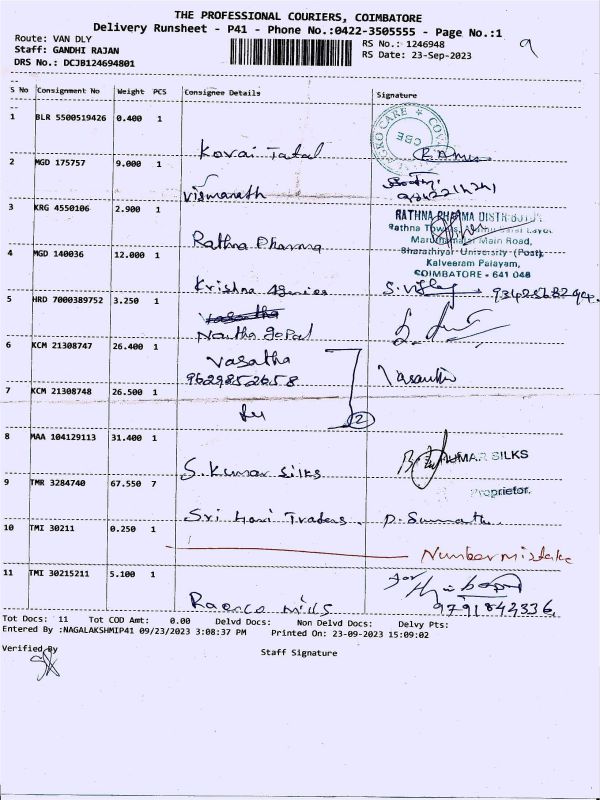 THE PROFESSIONAL COURIERS, COIMBATORE
Delivery Runsheet - P41 - Phone No.:0422-3505555 - Page No.:1
Route: VAN DLY
RS No.: 1246948
Staff: GANDHI RAJAN
RS Date: 23-Sep-2023
DRS No.: DCJB124694801
9
S No Consignment No Weight PCS Consignee Details Signature
1 BLR 5500519426 0.400 1
CARE COV CBE
Kovai
2 MGD 175757 9.000 1
Viswanath
3 KRG 4550106 2.900 1
RATHNA PHARMA DISTRIBUTOR
Rathna
Main Road,
Bharathiyar University (Post),
Kalveeram Palayam,
COIMBATORE - 641 046
Rathna Pharma
4 MGD 140036 12.000 1
Krishna Agencies
5 HRD 7000389752 3.250 1
Nantha gopal
6 KCM 21308747 26.400 1
Vasatha
9629852658
Vasantha
7 KCM 21308748 26.500 1
2
8 MAA 104129113 31.400 1
KUMAR SILKS
S. Kumar Silks
9 TMR 3284740 67.550 7
Proprietor.
Sri Hari Traders.
10 TMI 30211 0.250 1
Number mistake
11 TMI 30215211 5.100 1
for
mills
9791842336
Tot Docs: 11 Tot COD Amt: 0.00 Delvd Docs: Non Delvd Docs: Delvy Pts:
Entered By :NAGALAKSHMIP41 09/23/2023 3:08:37 PM Printed On: 23-09-2023 15:09:02
Verified By
Staff Signature